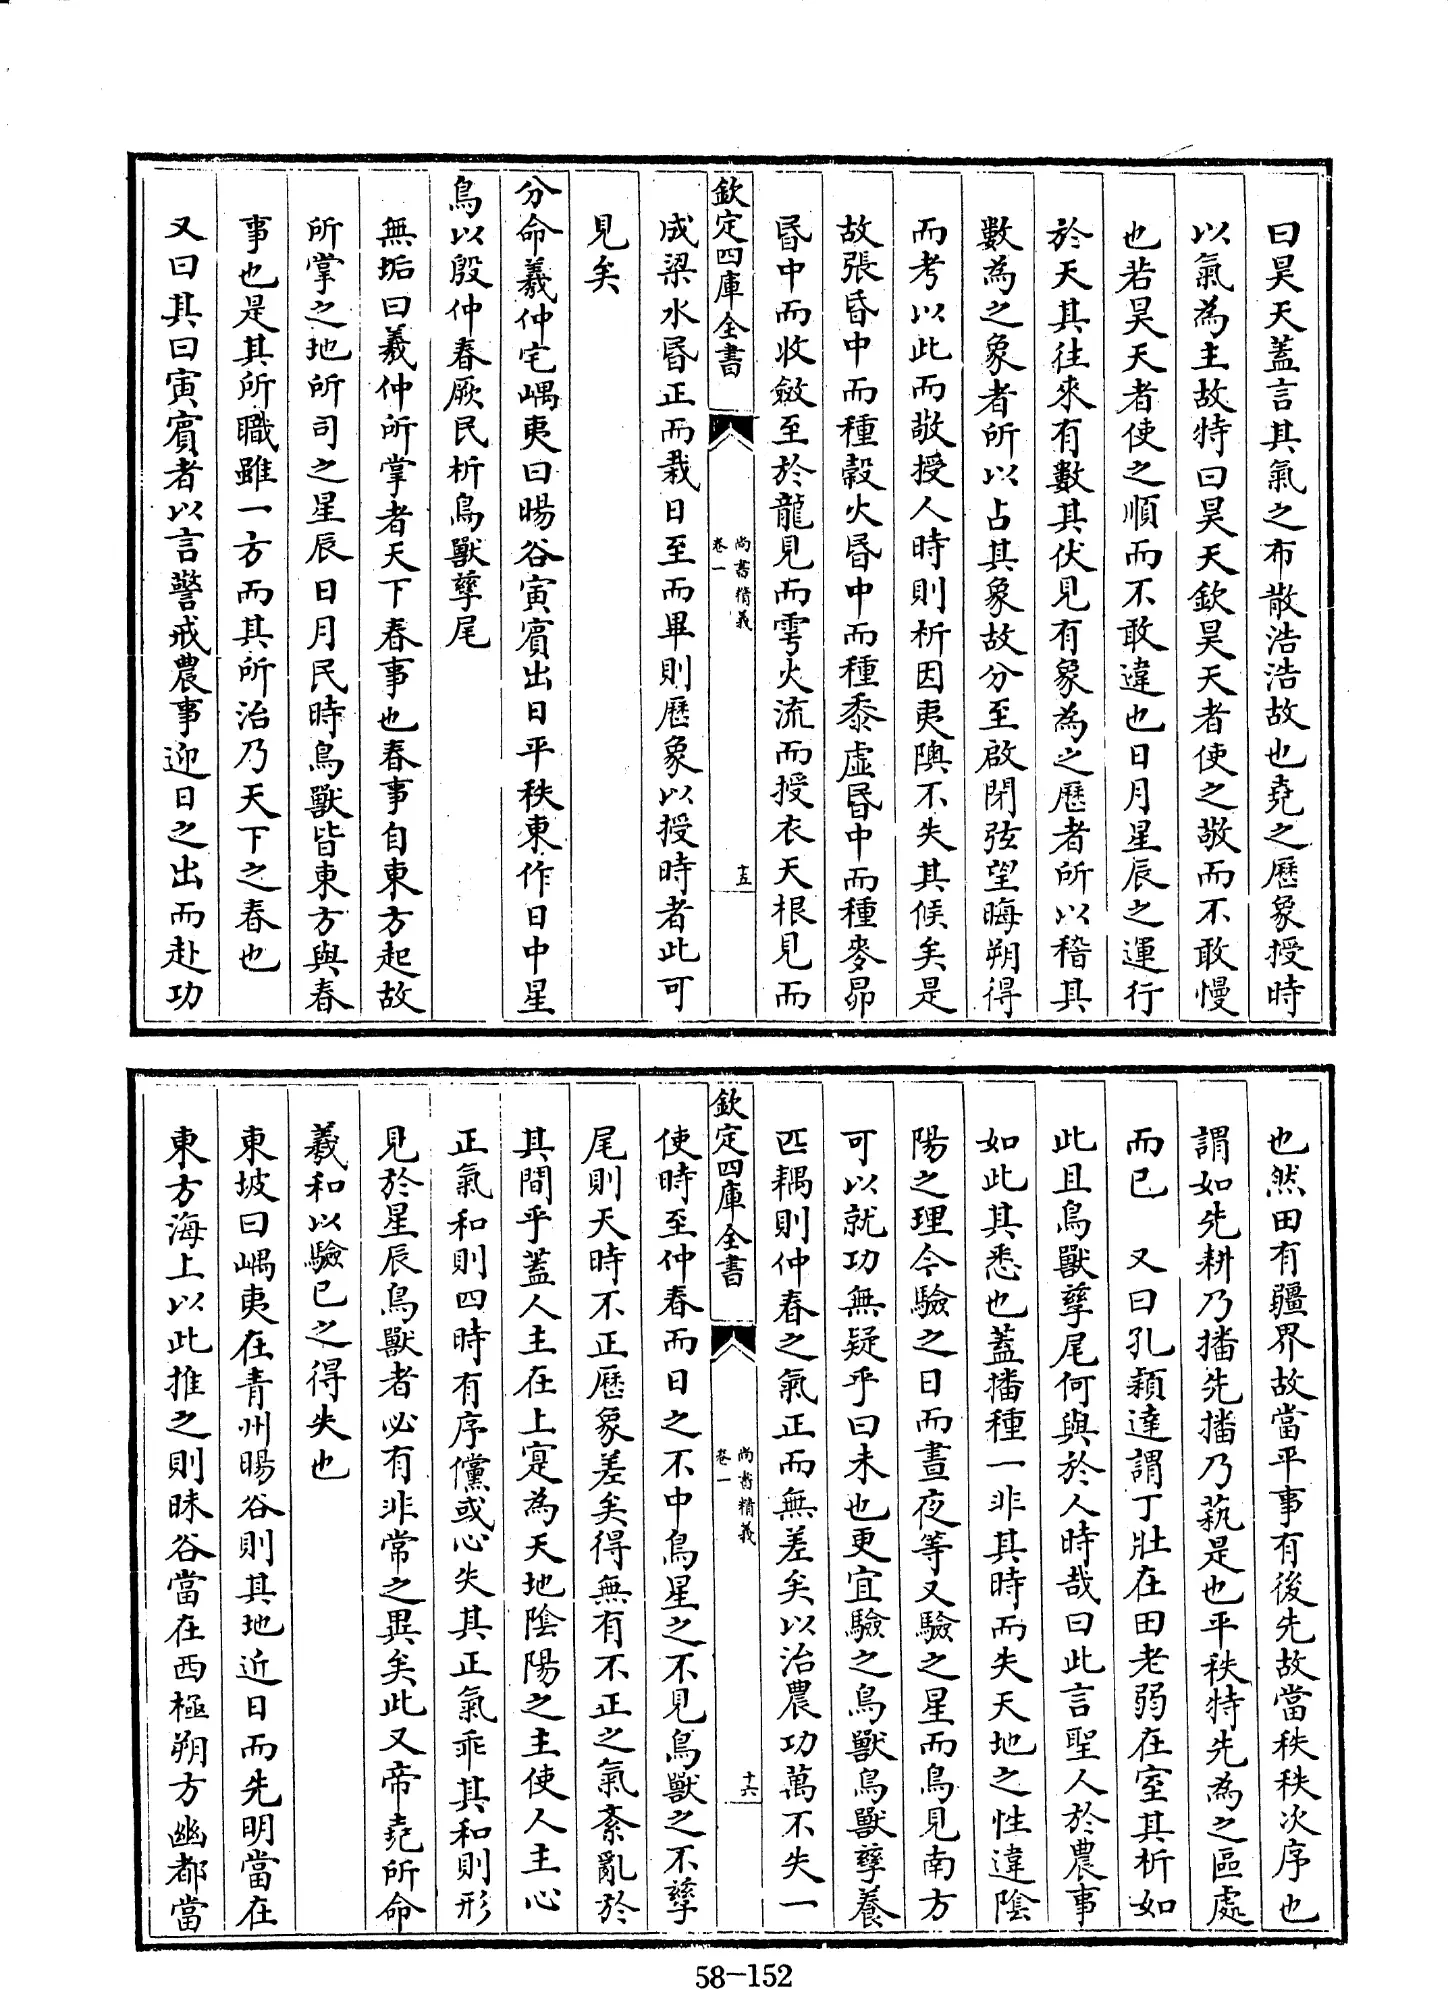 曰昊天蓋言其氣之布散浩浩故也堯之歷象授時
以氣為主故特曰昊天欽昊天者使之敬而不敢慢
也若昊天者使之順而不敢違也日月星辰之運行
於天其往來有數其伏見有象為之歷者所以稽其
數為之象者所以占其象故分至啟閉弦望晦朔得
而考以此而敬授人時則析因夷隩不失其候矣是
故張昏中而種穀火昏中而種黍虛昏中而種麥昴
昏中而收斂至於龍見而雩火流而授衣天根見而
欽定四庫全書
尚書精義
卷一
十五
成梁水昏正而栽日至而畢則歷象以授時者此可
見矣
分命羲仲宅嵎夷曰暘谷寅賓出日平秩東作日中星
鳥以殷仲春厥民析鳥獸孳尾
無垢曰羲仲所掌者天下春事也春事自東方起故
所掌之地所司之星辰日月民時鳥獸皆東方與春
事也是其所職雖一方而其所治乃天下之春也
又曰其曰寅賓者以言警戒農事迎日之出而赴功
也然田有疆界故當平事有後先故當秩秩次序也
謂如先耕乃播先播乃蓺是也平秩特先為之區處
而已 又曰孔穎達謂丁壯在田老弱在室其析如
此且鳥獸孳尾何與於人時哉曰此言聖人於農事
如此其悉也蓋播種一非其時而失天地之性違陰
陽之理今驗之日而晝夜等又驗之星而鳥見南方
可以就功無疑乎曰未也更宜驗之鳥獸鳥獸孳養
匹耦則仲春之氣正而無差矣以治農功萬不失一
欽定四庫全書
尚書精義
卷一
十六
使時至仲春而日之不中鳥星之不見鳥獸之不孳
尾則天時不正歷象差矣得無有不正之氣紊亂於
其間乎蓋人主在上寔為天地陰陽之主使人主心
正氣和則四時有序儻或心失其正氣乖其和則形
見於星辰鳥獸者必有非常之異矣此又帝堯所命
羲和以驗已之得失也
東坡曰嵎夷在青州暘谷則其地近日而先明當在
東方海上以此推之則昧谷當在西極朔方幽都當
58-152